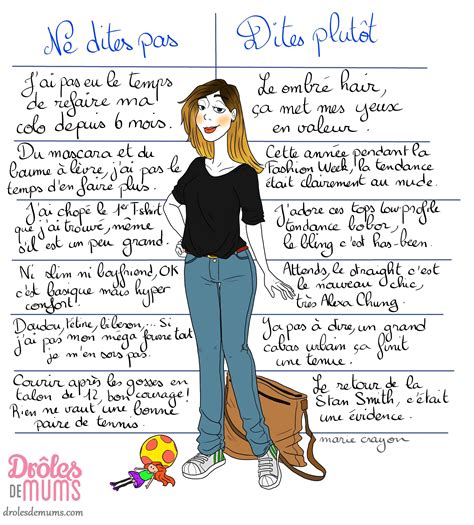 Ne dites pas
Dites plutôt
J'ai pas eu le temps
de refaire ma
colo depuis 6 mois.
Le ombré hair,
ça met mes yeux
en valeur.
Du mascara et du
baume à lèvre, j'ai pas le
temps d'en faire plus.
Cette année pendant la
Fashion Week, la tendance
était clairement au nude.
J'ai chopé le 1er T.shirt
que j'ai trouvé, même
s'il est un peu grand.
J'adore ces tops low profile
tendance bobor,
le bling c'est has-been.
Ni slim ni boyfriend, OK
c'est basique mais hyper
confort!
Attends, le straught c'est
le nouveau chic,
très Alexa Chung.
Doudou, tétine, biberon,... Si
j'ai pas mon méga fourre tout
je m'en sors pas.
Ya pas à dire, un grand
cabas urbain ça finit
une tenue.
Courir après les gosses en
talon de 12, bon courage!
Rien ne vaut une bonne
paire de tennis.
Le retour de la
Stan Smith, c'était
une évidence.
marie crayon
DRÔLES
DE MUMS
drolesdemums.com